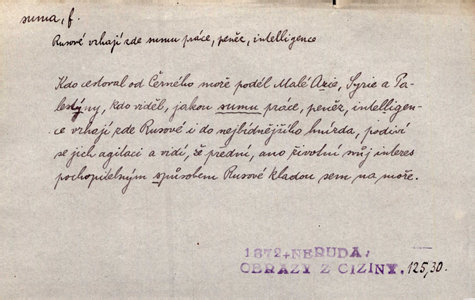 suma, f.
Rusové vrhají zde sumu práce, peněz, intelligence
Kdo cestoval od Černého moře podél Malé Azie, Syrie a Pa-
lestýny, kdo viděl, jakou sumu práce, peněz, intelligen-
ce vrhají zde Rusové i do nejbídnějšího hnízda, podiví
se jich agilaci a vidí, že přední, ano životní svůj interes
pochopitelným způsobem Rusové kladou sem na moře.
1872, NERUDA,
OBRAZY Z CIZINY. 125,30.